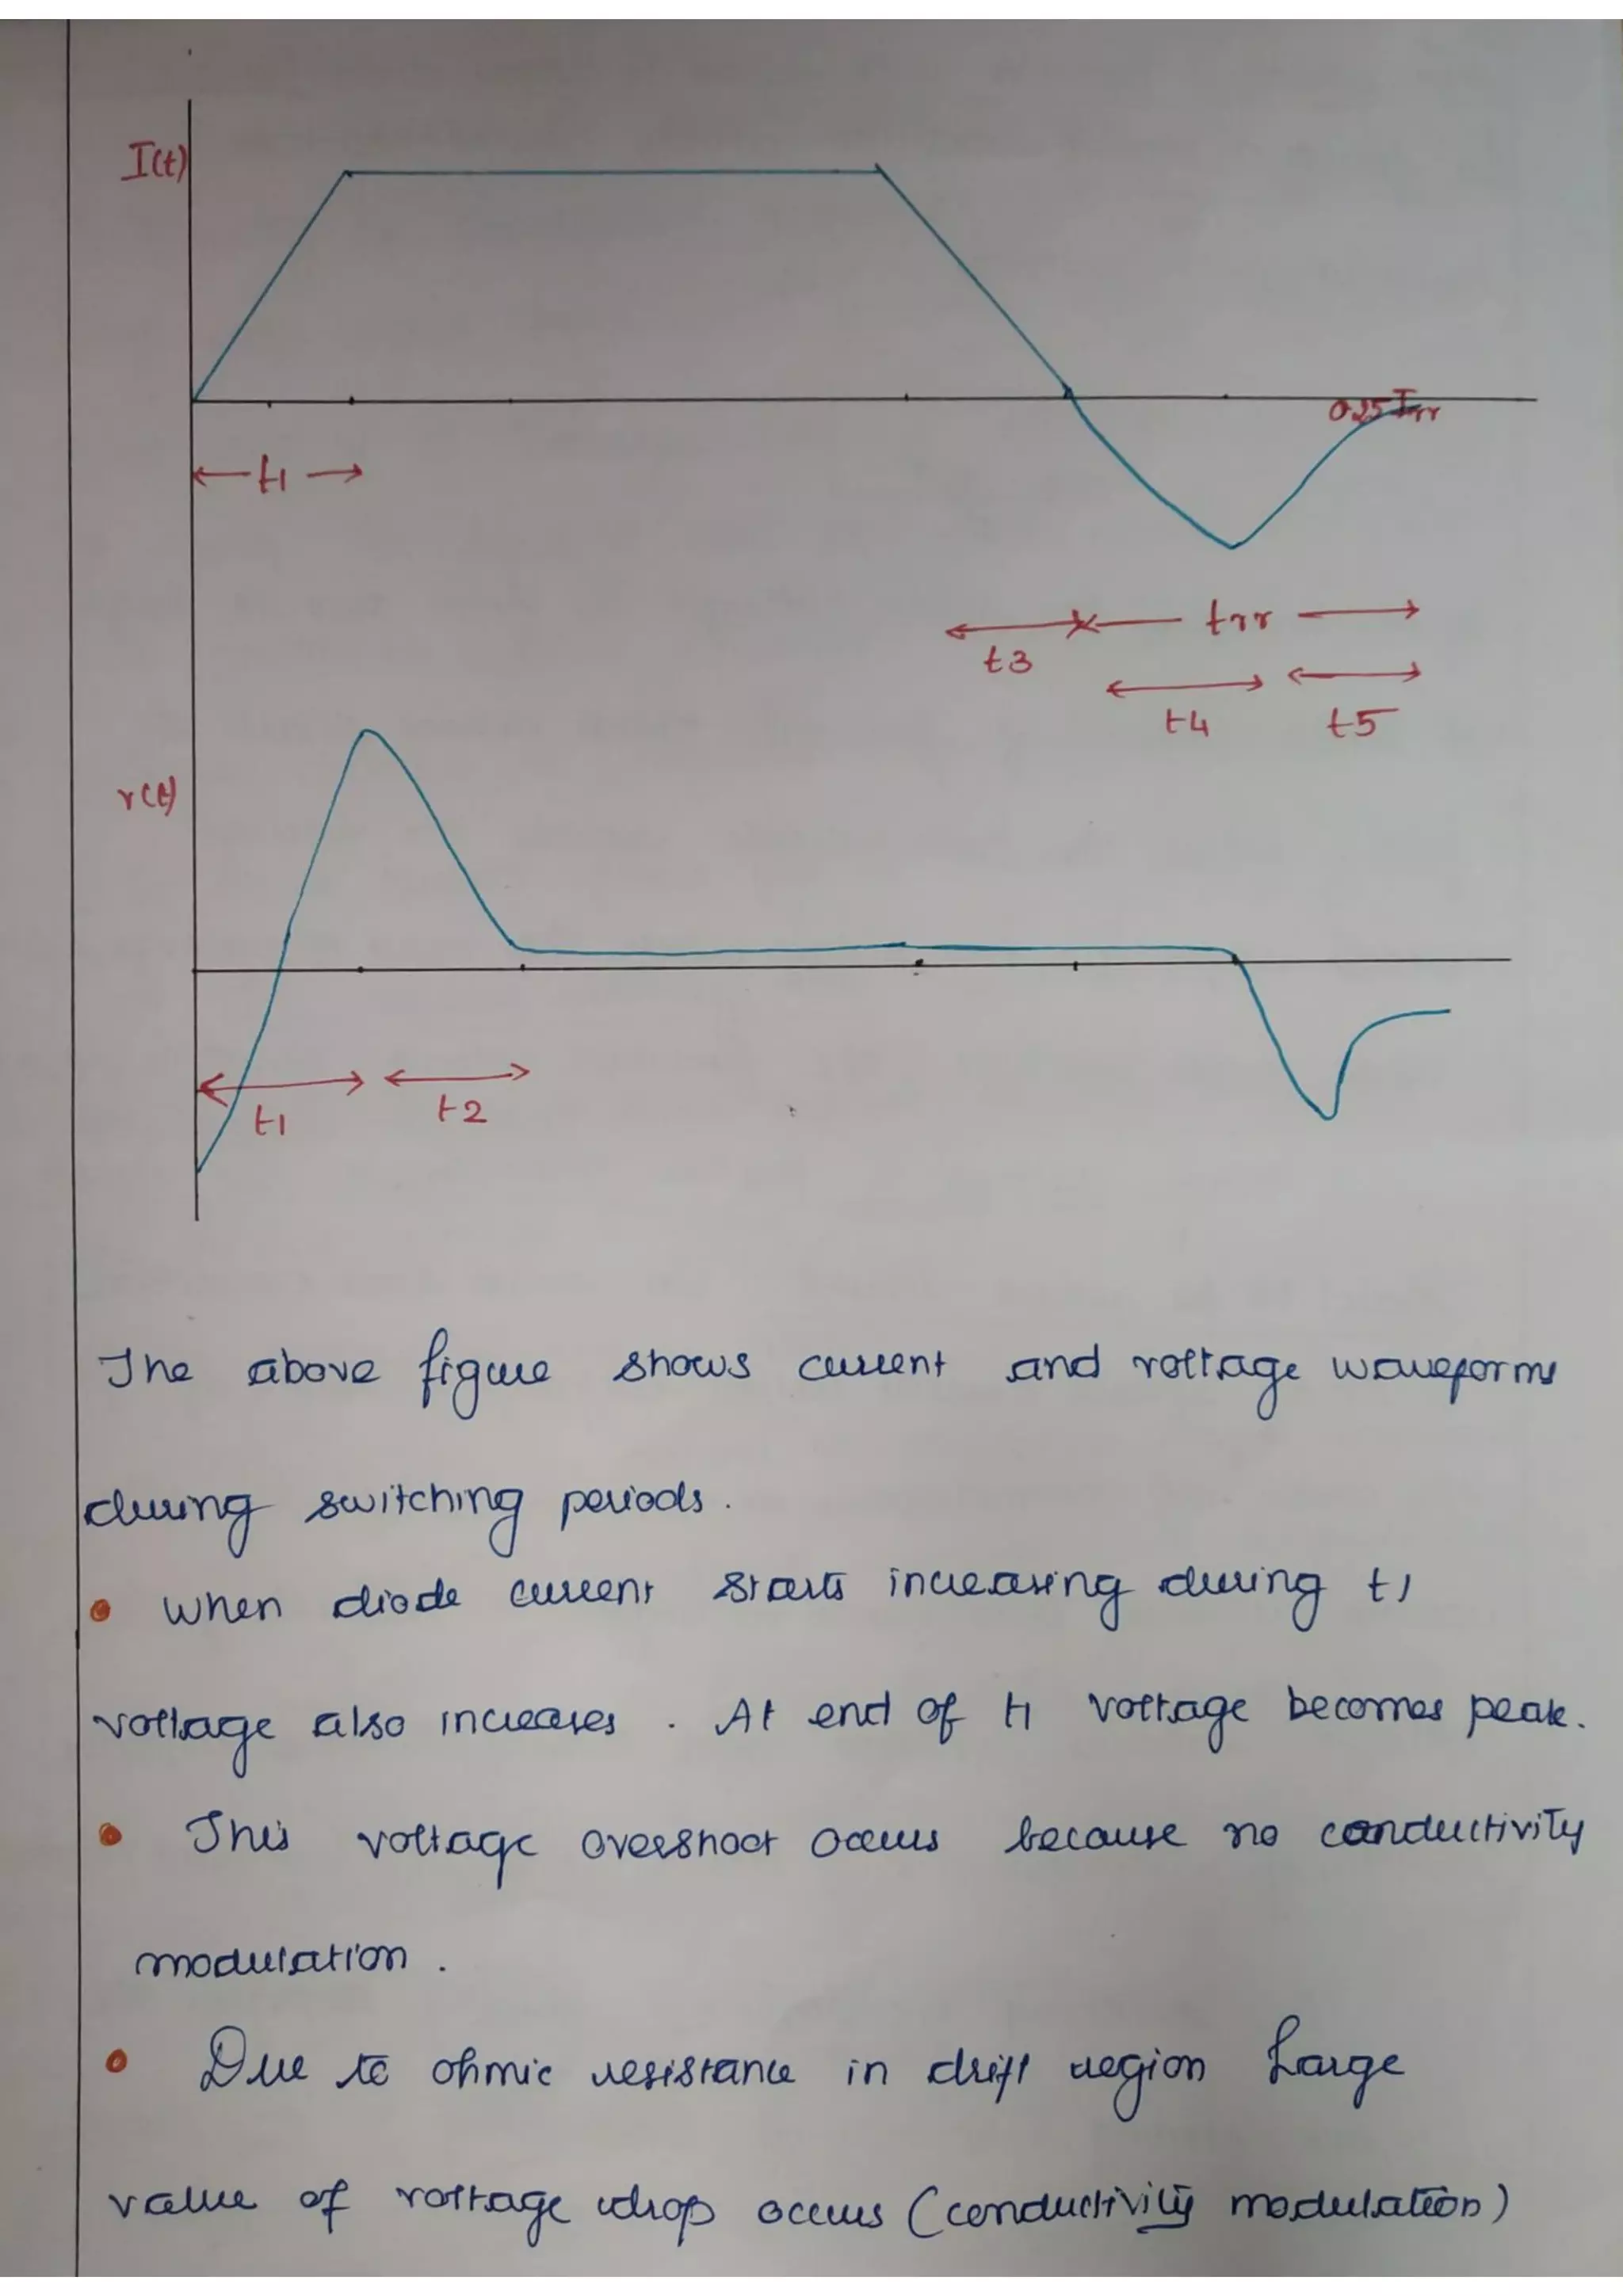 I(t)
0.25 Irr
t1
trr
t3
t4 t5
v(t)
t1 t2
The above figure shows current and voltage waveforms
during switching periods.
• When diode current starts increasing during t1
voltage also increases . At end of t1 voltage becomes peak.
• This voltage overshoot occurs because no conductivity
modulation .
• Due to ohmic resistance in drift region Large
value of voltage drop occurs (conductivity modulation)